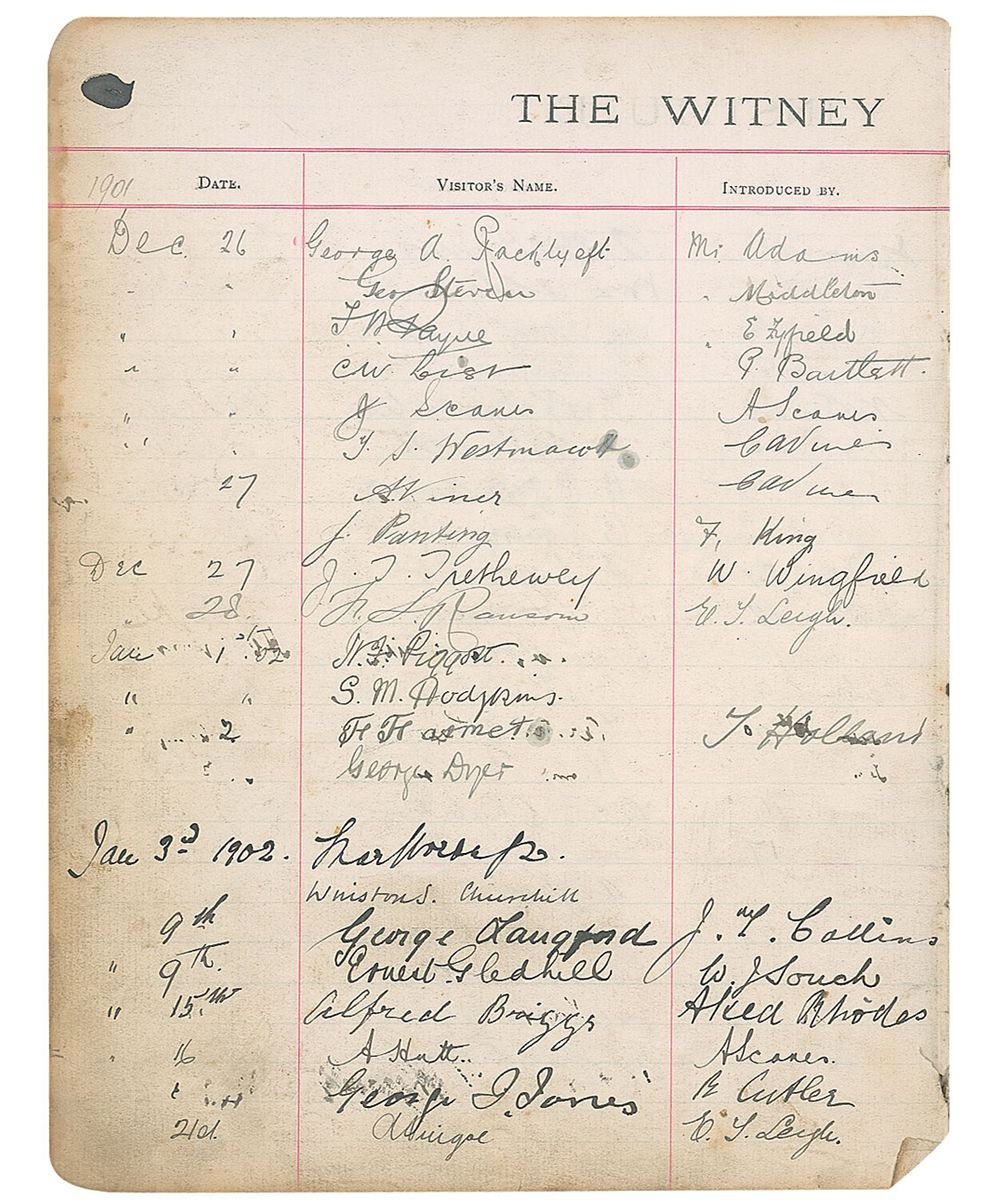 THE WITNEY
1901 DATE. VISITOR'S NAME. INTRODUCED BY.
Dec. 26 George A. Mr. Adams
" " Geo Steven " Middleton
" " F B Payne " E Fyfield
" " C W P. Bartlett.
" " J Scanes A Scanes
" " T. S. Westmacott
27 A Viner
J. Panting F. King
Dec 27 J. T. Trethewey W. Wingfield
" 28. F. S. Ransom E. T. Leigh.
Jan 1st 02 Piggott.
" " S. M. Hodgkins.
" 2 Holland
" " George Dyer "
Jan 3rd 1902.
Winston S. Churchill
9th George Langford J. Collins
" 9th. Ernest Gledhill W. J Souch
" 15th Alfred Briggs Aked Rhodes
" 16 A Hutt.. A Scanes.
George Cutler
21st. E. T. Leigh.